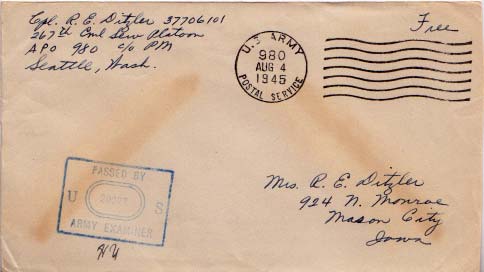 Cpl. R. E. Ditzler 37706101
267th Cml Serv Platoon
APO 980 c/o PM
Seattle, Wash.
Free
U.S. ARMY
980
AUG 4
1945
POSTAL SERVICE
PASSED BY
U S
ARMY EXAMINER
Mrs. R. E. Ditzler
924 N. Monroe
Mason City
Iowa